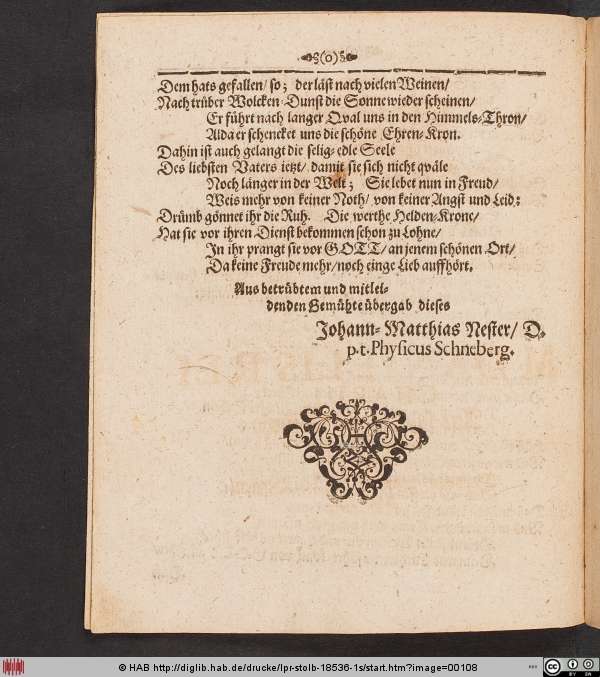 (o)
Dem hats gefallen/ so; der läst nach vielen Weinen/
Nach trüber Wolcken-Dunst die Sonne wieder scheinen/
Er führt nach langer Qval uns in den Himmels-Thron/
Alda er schencket uns die schöne Ehren-Kron.
Dahin ist auch gelangt die selig-edle Seele
Des liebsten Vaters ietzt/ damit sie sich nicht qväle
Noch länger in der Welt; Sie lebet nun in Freud/
Weis mehr von keiner Noth/ von keiner Angst und Leid:
Drümb gönnet ihr die Ruh. Die werthe Helden-Krone/
Hat sie vor ihren Dienst bekommen schon zu Lohne/
In ihr prangt sie vor GOTT/ an jenem schönen Ort/
Da keine Freude mehr/ noch einge Lieb auffhört.
Aus betrübtem und mitlei-
denden Gemühte übergab dieses
Johann-Matthias Nester/ D.
p.t. Physicus Schneberg.
© HAB http://diglib.hab.de/drucke/lpr-stolb-18536-1s/start.htm?image=00108